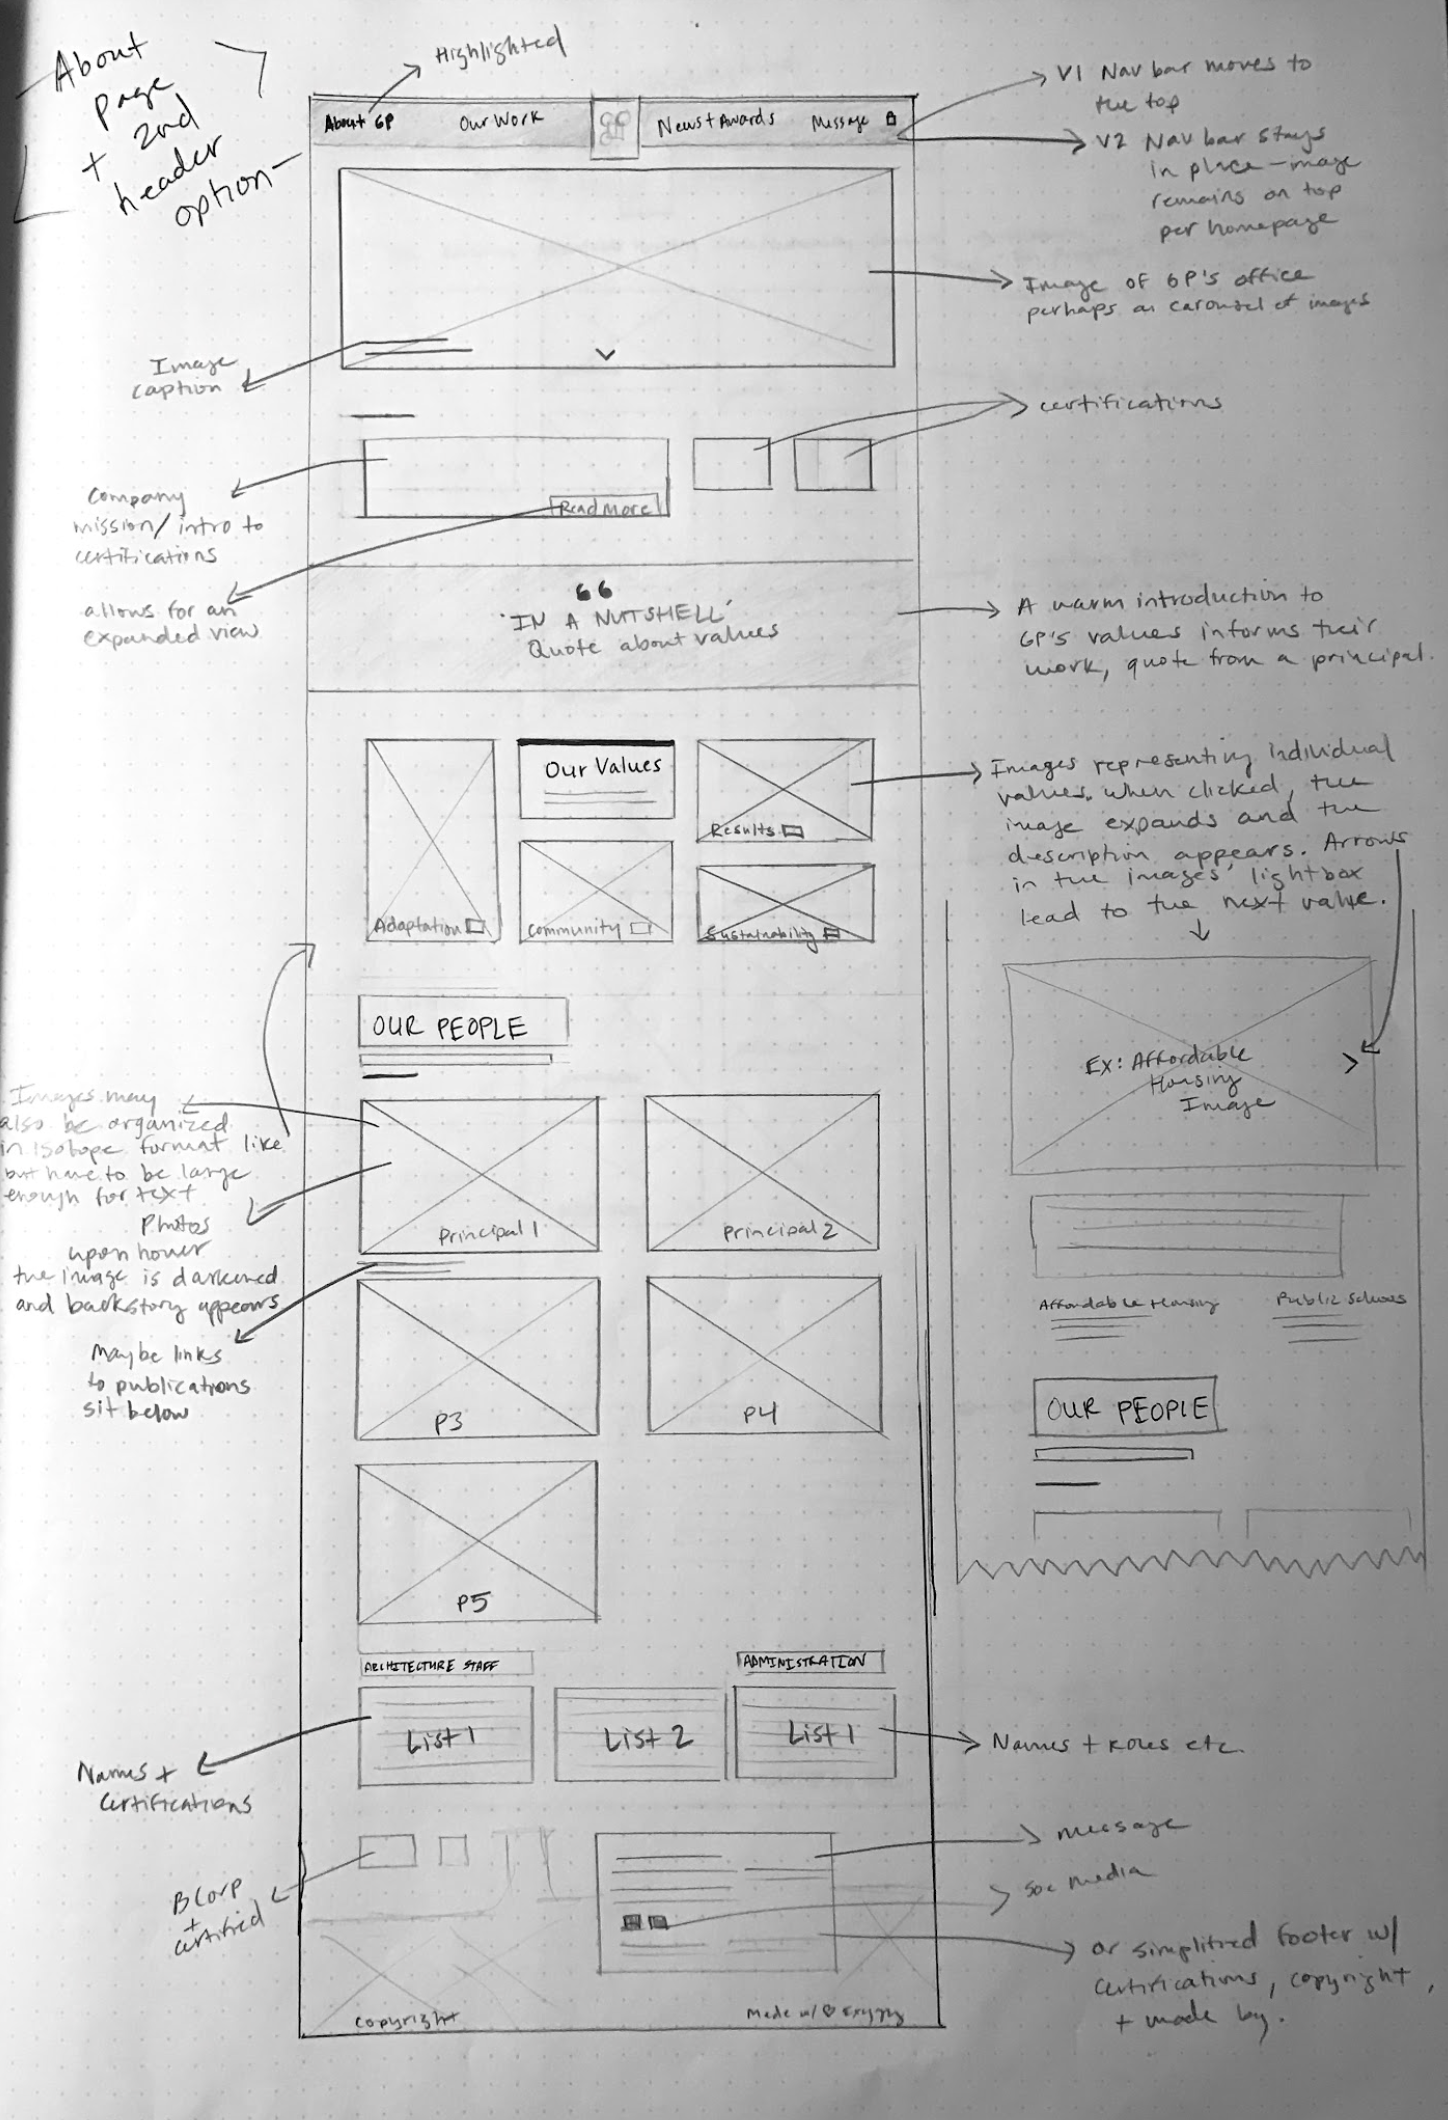 About
page
+ 2nd
header
option
Highlighted
About GP
Our Work
News + Awards
Message
V1 Nav bar moves to
the top
V2 Nav bar stays
in place - image
remains on top
per homepage
Image of GP's office
perhaps a carousel of images
Image
caption
certifications
Company
mission/intro to
certifications
Read More
allows for an
expanded view
"IN A NUTSHELL"
Quote about values
A warm introduction to
GP's values informs their
work, quote from a principal.
Our Values
Results
Adaptation
Community
Sustainability
Images representing individual
values. When clicked, the
image expands and the
description appears. Arrows
in the images' lightbox
lead to the next value.
Ex: Affordable
Housing
Image
Affordable Housing
Public Schools
OUR PEOPLE
OUR PEOPLE
Images may
also be organized
in isotope format like
but have to be large
enough for text
Photos
upon hover
the image is darkened
and backstory appears
Maybe links
to publications
sit below
Principal 1
Principal 2
P3
P4
P5
ARCHITECTURE STAFF
ADMINISTRATION
List 1
List 2
List 1
Names +
Certifications
Names + roles etc.
BCorp
+
certified
message
Soc media
or simplified footer w/
certifications, copyright,
+ made by.
Copyright
Made w/ ♡